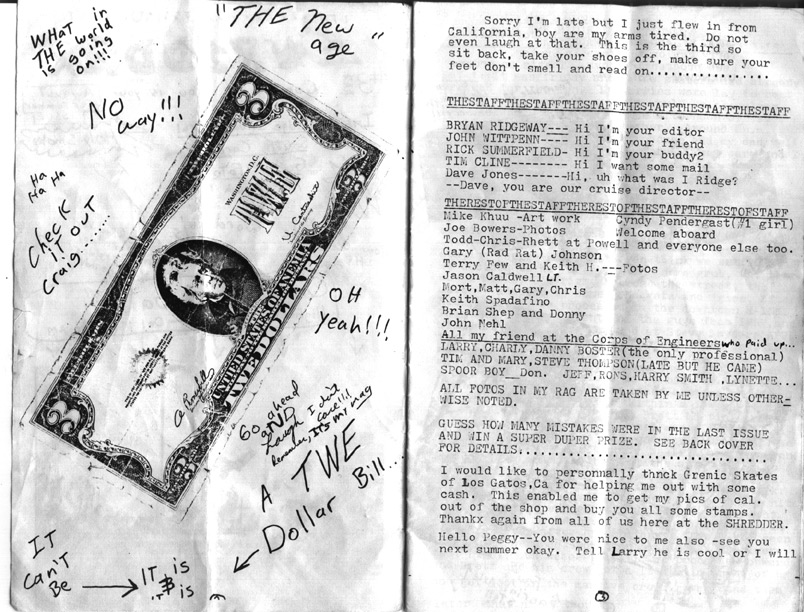 WHAT in
THE world
is going
on!!!
"THE New
age"
NO
way!!!
Ha
Ha Ha
Check
IT OUT
Craig.......
WASHINGTON, D.C.
3
3
3
OH
Yeah!!!
Go ahead
AND
laugh I don't
care!!!
Remember, IT's my mag
A TWE
Dollar Bill...
IT
Can't
Be
IT is
IT is
Sorry I'm late but I just flew in from
California, boy are my arms tired. Do not
even laugh at that. This is the third so
sit back, take your shoes off, make sure your
feet don't smell and read on................
THESTAFFTHESTAFFTHESTAFFTHESTAFFTHESTAFFTHESTAFF
BRYAN RIDGEWAY--- Hi I'm your editor
JOHN WITTPENN---- Hi I'm your friend
RICK SUMMERFIELD- Hi I'm your buddy2
TIM CLINE-------- Hi I want some mail
Dave Jones-------Hi, uh what was I Ridge?
--Dave, you are our cruise director--
THERESTOFTHESTAFFTHERESTOFTHESTAFFTHERESTOFSTAFF
Mike Khuu -Art work Cyndy Pendergast(#1 girl)
Joe Bowers-Photos Welcome aboard
Todd-Chris-Rhett at Powell and everyone else too.
Gary (Rad Rat) Johnson
Terry Few and Keith H.---Fotos
Jason Caldwell LT.
Mort,Matt,Gary,Chris
Keith Spadafino
Brian Shep and Donny
John Nehl
All my friend at the Corps of Engineers who paid up...
LARRY,CHARLY,DANNY BOSTER(the only professional)
TIM AND MARY,STEVE THOMPSON(LATE BUT HE CAME)
SPOOR BOY__Don. JEFF,RONS,HARRY SMITH ,LYNETTE...
ALL FOTOS IN MY RAG ARE TAKEN BY ME UNLESS OTHER-
WISE NOTED.
GUESS HOW MANY MISTAKES WERE IN THE LAST ISSUE
AND WIN A SUPER DUPER PRIZE. SEE BACK COVER
FOR DETAILS....................................
I would like to personnally thnck Gremic Skates
of Los Gatos,Ca for helping me out with some
cash. This enabled me to get my pics of cal.
out of the shop and buy you all some stamps.
Thankx again from all of us here at the SHREDDER.
Hello Peggy--You were nice to me also -see you
next summer okay. Tell Larry he is cool or I will
3